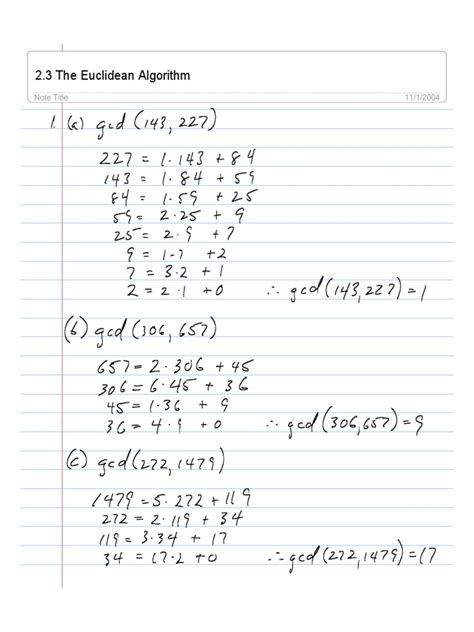 2.3 The Euclidean Algorithm
Note Title 11/1/2004
1. (a) gcd (143, 227)
227 = 1·143 + 84
143 = 1·84 + 59
84 = 1·59 + 25
59 = 2·25 + 9
25 = 2·9 + 7
9 = 1·7 + 2
7 = 3·2 + 1
2 = 2·1 + 0 ∴ gcd(143,227) = 1
(b) gcd (306, 657)
657 = 2·306 + 45
306 = 6·45 + 36
45 = 1·36 + 9
36 = 4·9 + 0 ∴ gcd(306,657) = 9
(c) gcd(272, 1479)
1479 = 5·272 + 119
272 = 2·119 + 34
119 = 3·34 + 17
34 = 17·2 + 0 ∴ gcd(272,1479) = 17